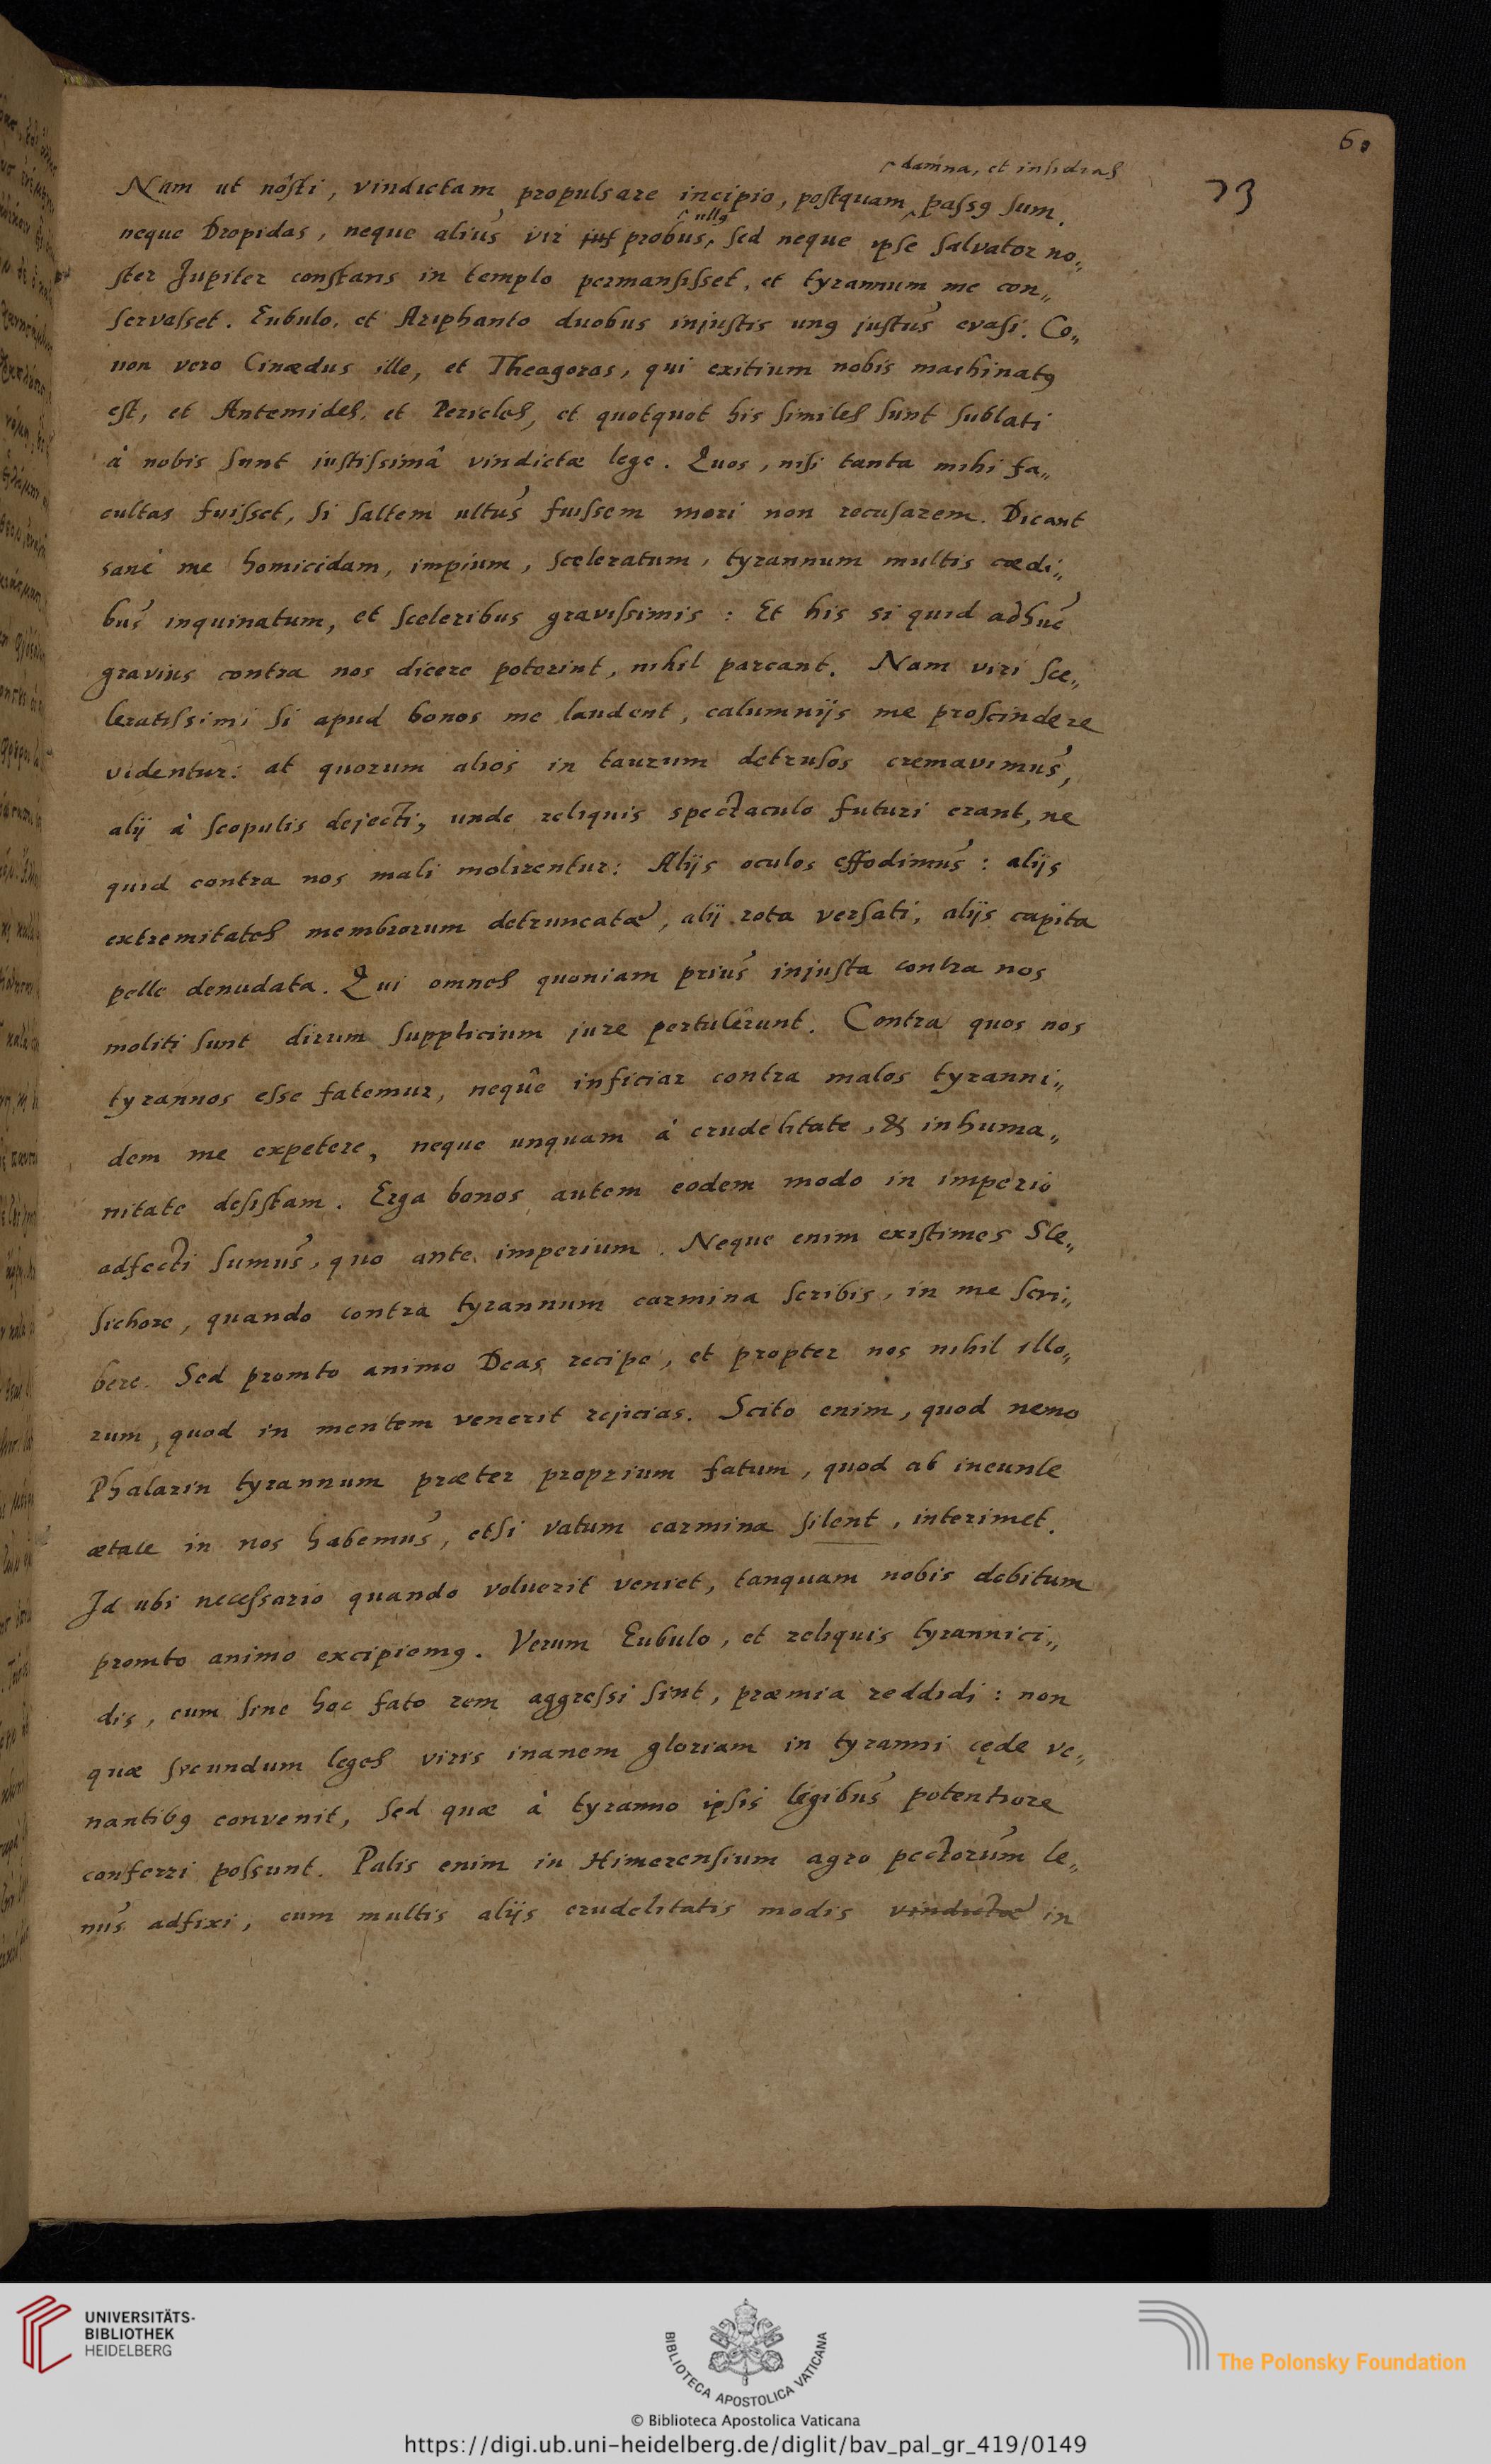 60
73
damna, et insidias
Nam ut nôsti, vindictam propulsare incipio, postquam passꝰ sum.
ullꝰ
neque Dropidas, neque alius vir jus probus, sed neque ipse salvator no„
ster Jupiter constans in templo permansisset, et tyrannum me con„
servasset. Eubulo, et Ariphanto duobus injustis unꝰ justus evasi. Co„
non vero Cinædus ille, et Theagoras, qui exitium nobis machinatꝰ
est, et Antemides, et Pericles, et quotquot his similes sunt sublati
à nobis sunt justissimâ vindictæ lege. Quos, nisi tanta mihi fa„
cultas fuisset, si saltem ultus fuissem mori non recusarem. Dicant
sanè me homicidam, impium, sceleratum, tyrannum multis cædi„
bus inquinatum, et sceleribus gravissimis : Et his si quid adhuc
gravius contra nos dicere poterint, nihil parcant. Nam viri sce„
leratissimi si apud bonos me laudent, calumnijs me proscindere
videntur: at quorum alios in taurum detrusos cremavimus,
alij à scopulis dejecti, unde reliquis spectaculo futuri erant, ne
quid contra nos mali molirentur: Alijs oculos effodimus : alijs
extremitates membrorum detruncatæ, alij rota versati, alijs capita
pelle denudata. Qui omnes quoniam prius injusta contra nos
moliti sunt dirum supplicium jure pertulêrunt. Contra quos nos
tyrannos esse fatemur, nequê inficiar contra malos tyranni„
dem me expetere, neque unquam à crudelitate, & inhuma„
nitate desistam. Erga bonos autem eodem modo in imperio
adfecti sumus, quo ante imperium. Neque enim existimes Ste„
sichore, quando contra tyrannum carmina scribis, in me scri„
bere. Sed promto animo Deas recipe, et propter nos nihil illo„
rum, quod in mentem venerit rejicias. Scito enim, quod nemo
Phalarin tyrannum præter proprium fatum, quod ab ineunte
ætate in nos habemus, etsi vatum carmina silent, interimet.
Id ubi necessario quando voluerit veniet, tanquam nobis debitum
promto animo excipiemꝰ. Verum Eubulo, et reliquis tyrannici„
dis, cum sine hoc fato rem aggressi sint, præmia reddidi : non
quæ secundum leges viris inanem gloriam in tyranni cęde ve„
nantibꝰ convenit, sed quæ à tyranno ipsis legibus potentiore
conferri possunt. Palis enim in Himerensium agro pectorum le„
nus adfixi, cum multis alijs crudelitatis modis vindictæ in
UNIVERSITÄTS-
BIBLIOTHEK
HEIDELBERG
BIBLIOTECA APOSTOLICA VATICANA
The Polonsky Foundation
© Biblioteca Apostolica Vaticana
https://digi.ub.uni-heidelberg.de/diglit/bav_pal_gr_419/0149